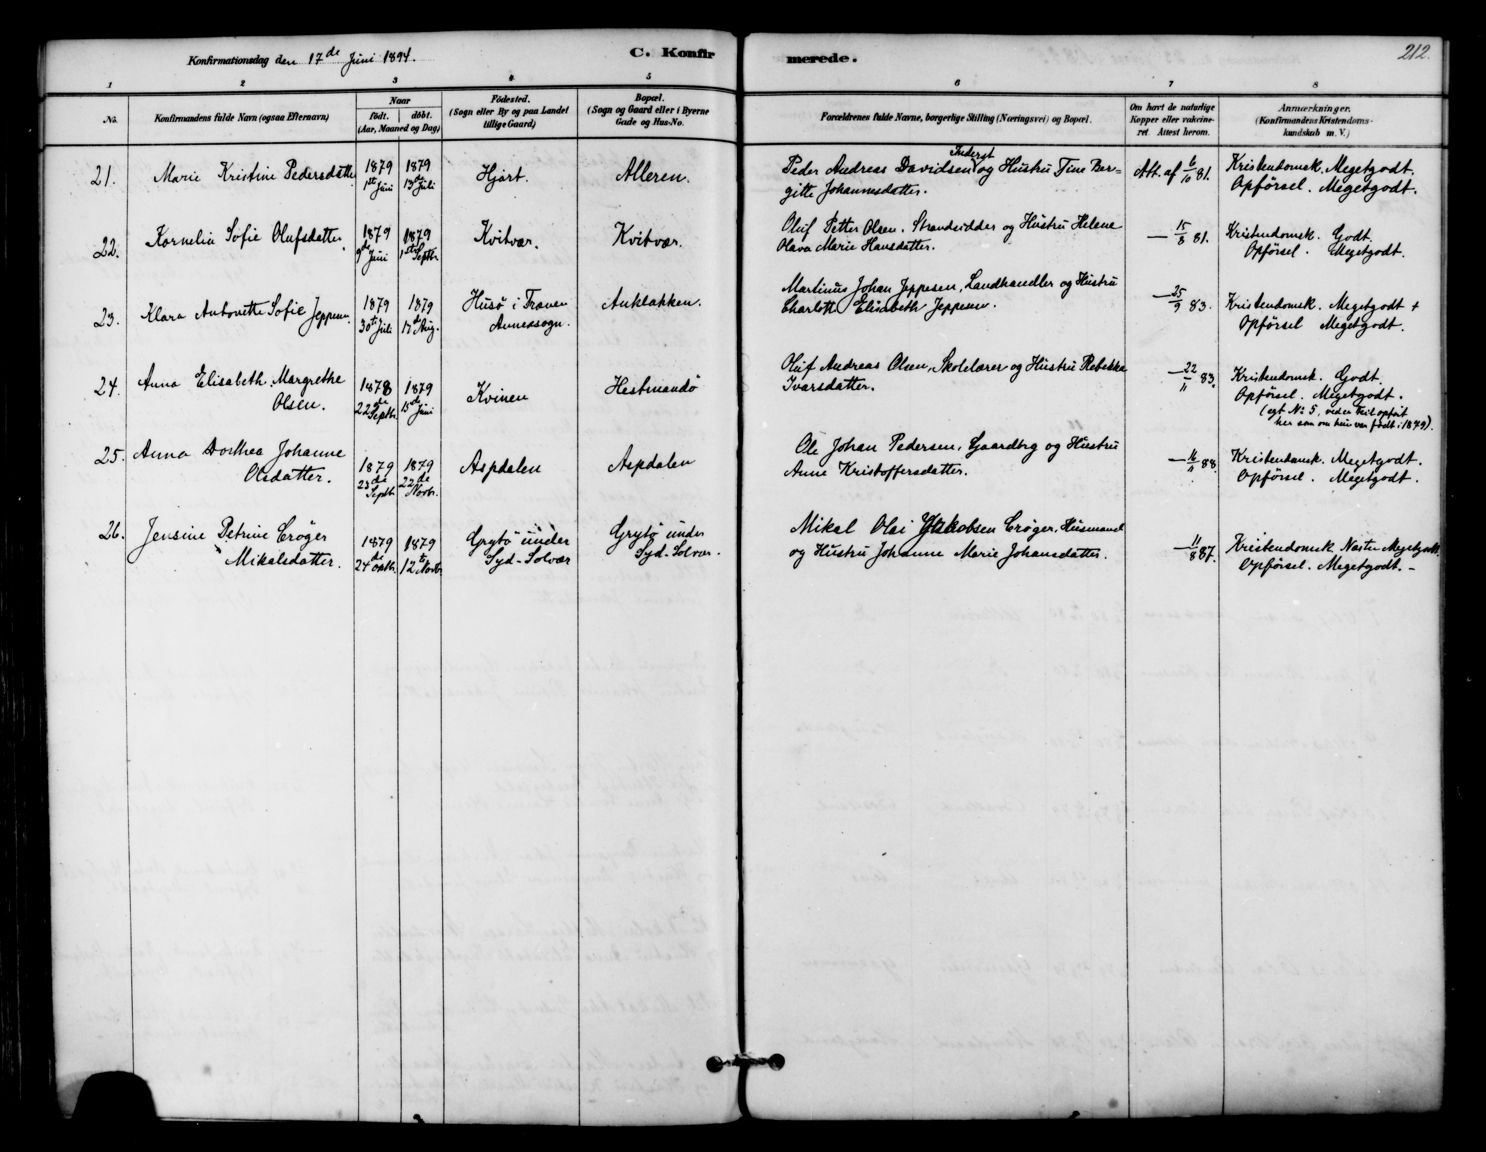 Konfirmationsdag den 17de Juni 1894.
C. Konfirmerede.
212.
1 2 3 4 5 6 7 8
No.
Konfirmandens fulde Navn (ogsaa Efternavn)
Naar
födt. döbt.
(Aar, Maaned og Dag)
Födested.
(Sogn eller By og paa Landet
tillige Gaard)
Bopæl.
(Sogn og Gaard eller i Byerne
Gade og Hus-No.
Forældrenes fulde Navne, borgerlige Stilling (Næringsvei) og Bopæl.
Om havt de naturlige
Kopper eller vakcine-
ret Attest herom.
Anmærkninger.
(Konfirmandens Kristendoms-
kundskab m. V.)
21. Marie Kristine Pedersdatter
1879 1ste Juni
1879 13de Juli
Hjart.
Alleren.
Peder Andreas Davidsen Inderst og Hustru Tine Ber-
gitte Johannesdatter.
Att. af 6/10 81.
Kristendomsk. Megetgodt.
Opförsel. Megetgodt.
22. Kornelia Sofie Olufsdatter.
1879 9de Juni
1879 1ste Septbr.
Kvitvær.
Kvitvær.
Oluf Petter Olsen. Strandsidder og Hustru Helene
Olava Marie Hansdatter.
— 15/8 81.
Kristendomsk. Godt.
Opförsel. Megetgodt.
23. Klara Antonette Sofie Jeppesen
1879 30te Juli
1879 17de Aug.
Husö i Træven
Annexsogn.
Anklakken.
Martinus Johan Jeppesen, Landhandler og Hustru
Charlotte Elisabeth Jeppesen.
— 25/9 83.
Kristendomsk. Megetgodt +
Opförsel Megetgodt.
24. Anna Elisabeth Margrethe
Olsen.
1878 22de Septbr.
1879 15de Juni
Kvinen
Hestmandö
Oluf Andreas Olsen, Skolelærer og Hustru Rebekka
Ivarsdatter.
— 22/11 83.
Kristendomsk. Godt.
Opförsel. Megetgodt.
(egt. No 5, vedex feil opfört
her som om hun var födt i 1879).
25. Anna Dorthea Johanne
Olsdatter.
1879 23de Septbr.
1879 22de Novbr.
Aspdalen
Aspdalen
Ole Johan Pedersen, Gaardbrg og Hustru
Anne Kristoffersdatter.
— 16/11 88.
Kristendomsk. Megetgodt.
Opförsel. Megetgodt.
26. Jensine Petrine Cröger
Mikalsdatter.
1879 24de
1879 12te Novbr.
Grytö under
Syd-Solvær
Grytö under
Syd. Solvær.
Mikal Olai Jakobsen Cröger, Husmand
og Hustru Johanne Marie Johansdatter.
— 11/8 87.
Kristendomsk Næsten Megetgodt.
Opförsel. Megetgodt. –